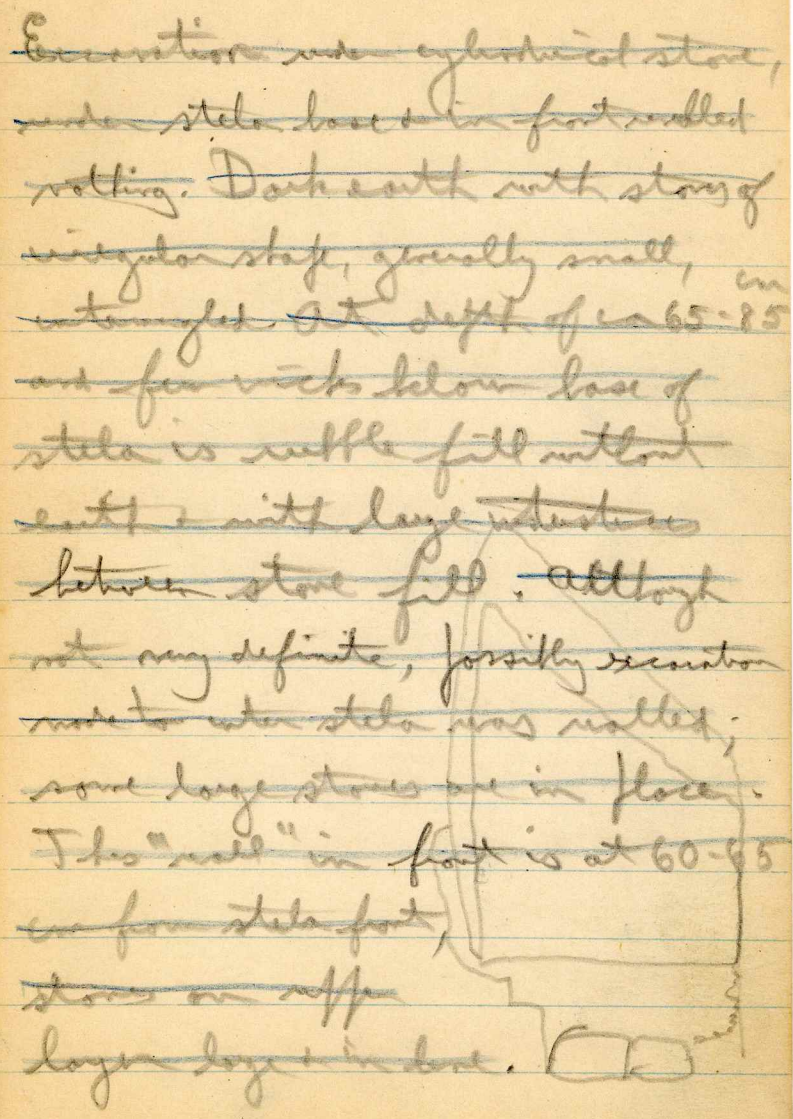 Excavation under cylindrical stone,
under stela base & in front yielded
nothing. Dark earth with stones of
irregular shape, generally small,
intermingled. At depth of ca 65-85 cm
and few below base of
stela is rubble fill without
earth & with large interstices
between stone fill. Although
not very definite, possibly excavation
made to enter stela was walled;
some large stones are in place.
This "wall" in front is at 60-65
cm from stela front,
stones on upper
layer large & in line.